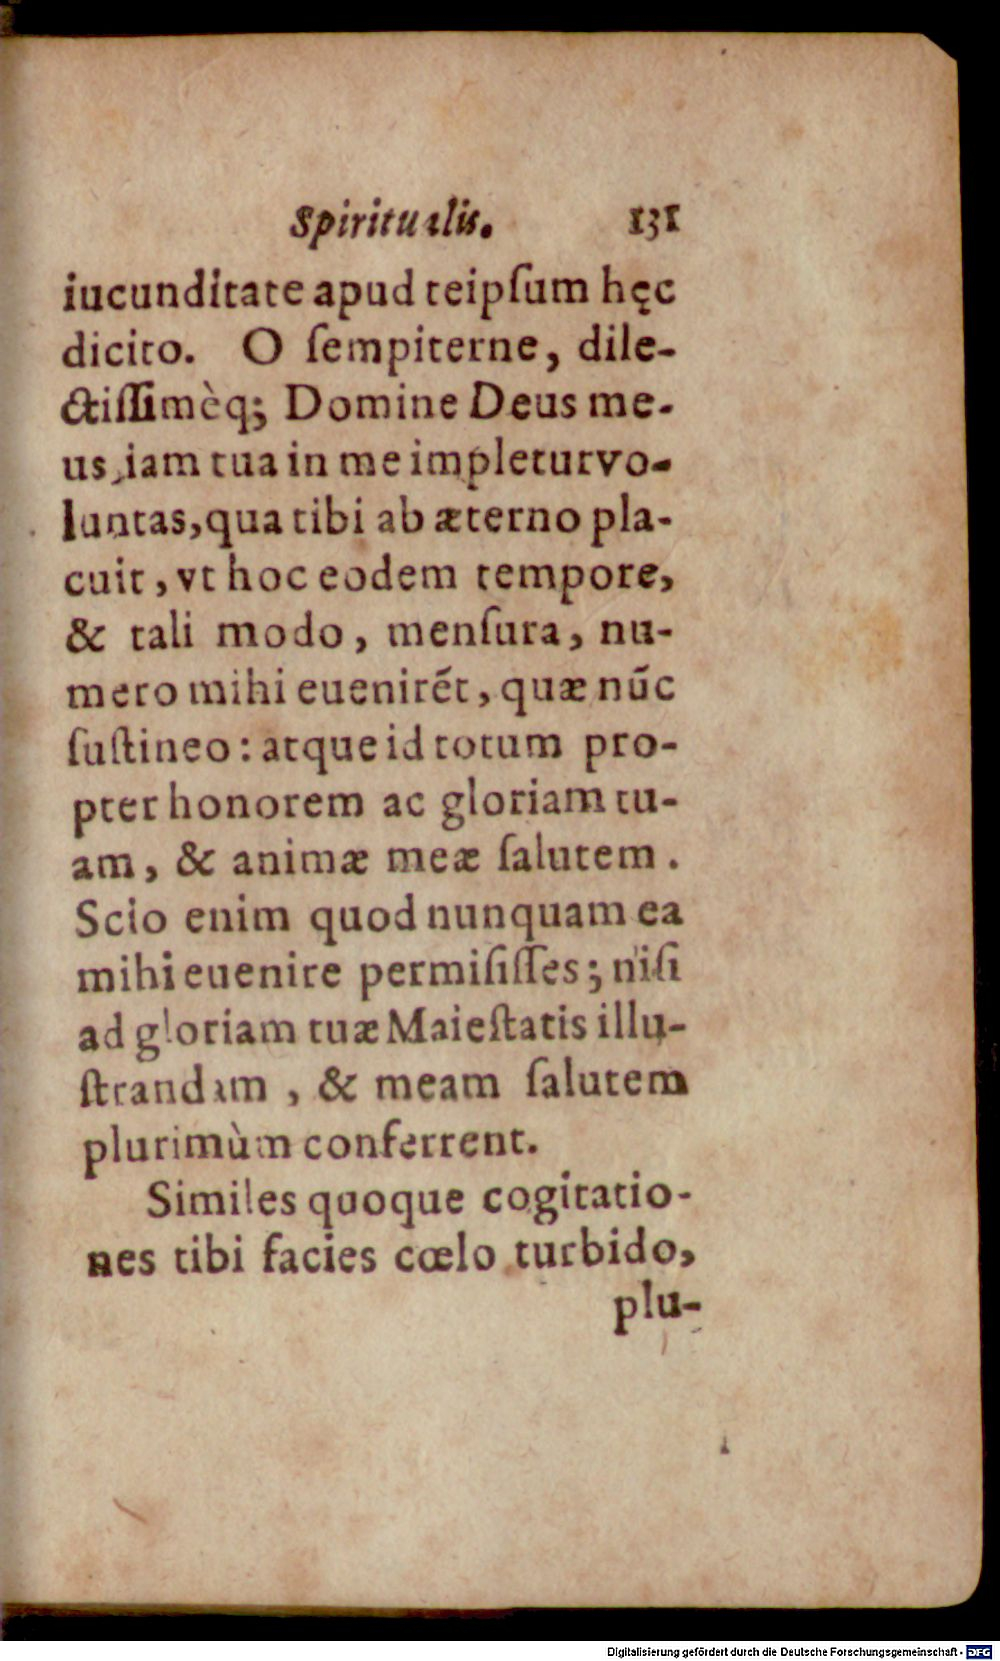 Spiritualis. 131
iucunditate apud teipſum hęc
dicito. O ſempiterne, dile-
ctiſſimèq; Domine Deus me-
us, iam tua in me impletur vo-
luntas, qua tibi ab æterno pla-
cuit, vt hoc eodem tempore,
& tali modo, menſura, nu-
mero mihi euenirẽt, quæ nũc
ſuſtineo: atque id totum pro-
pter honorem ac gloriam tu-
am, & animæ meæ ſalutem.
Scio enim quod nunquam ea
mihi euenire permiſiſſes; niſi
ad gloriam tuæ Maieſtatis illu-
ſtrandam, & meam ſalutem
plurimùm conferrent.
Similes quoque cogitatio-
nes tibi facies cœlo turbido,
plu-
Digitalisierung gefördert durch die Deutsche Forschungsgemeinschaft - DFG